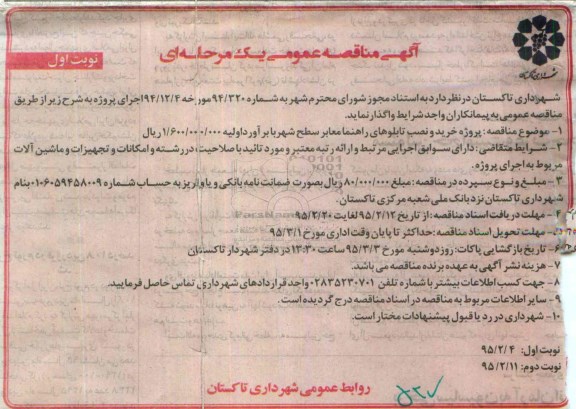 آگهی مناقصه عمومی یک مرحله‌ای
نوبت اول
شهرداری تاکستان
شهرداری تاکستان در نظر دارد به استناد مجوز شورای محترم شهر به شماره ۹۴/۳۲۰ مورخه ۹۴/۱۲/۴ اجرای پروژه به شرح زیر از طریق
مناقصه عمومی به پیمانکاران واجد شرایط واگذار نماید.
۱- موضوع مناقصه: پروژه خرید و نصب تابلوهای راهنما معابر سطح شهر با برآورد اولیه ۱/۶۰۰/۰۰۰/۰۰۰ ریال
۲- شرایط متقاضی: دارای سوابق اجرایی مرتبط و ارائه رتبه معتبر و مورد تائید با صلاحیت در رشته و امکانات و تجهیزات و ماشین آلات
مربوط به اجرای پروژه.
۳- مبلغ و نوع سپرده در مناقصه: مبلغ ۸۰/۰۰۰/۰۰۰ ریال بصورت ضمانت نامه بانکی و یا واریز به حساب شماره ۰۱۰۶۰۵۹۴۵۸۰۰۹ بنام
شهرداری تاکستان نزد بانک ملی شعبه مرکزی تاکستان.
۴- مهلت دریافت اسناد مناقصه: از تاریخ ۹۵/۲/۱۲ لغایت ۹۵/۲/۲۰
۵- مهلت تحویل اسناد مناقصه: حداکثر تا پایان وقت اداری مورخ ۹۵/۳/۱
۶- تاریخ بازگشایی پاکات: روز دوشنبه مورخ ۹۵/۳/۳ ساعت ۱۳:۳۰ در دفتر شهردار تاکستان
۷- هزینه نشر آگهی به عهده برنده مناقصه می باشد.
۸- جهت کسب اطلاعات بیشتر با شماره تلفن ۰۲۸۳۵۲۳۰۷۰۱ واحد قراردادهای شهرداری تماس حاصل فرمایید.
۹- سایر اطلاعات مربوط به مناقصه در اسناد مناقصه درج گردیده است.
۱۰- شهرداری در رد یا قبول پیشنهادات مختار است.
نوبت اول: ۹۵/۲/۴
نوبت دوم: ۹۵/۲/۱۱
روابط عمومی شهرداری تاکستان